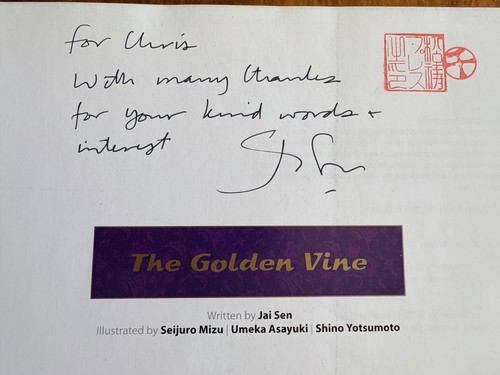 For Chris
With many thanks
for your kind words +
interest
The Golden Vine
Written by Jai Sen
Illustrated by Seijuro Mizu | Umeka Asayuki | Shino Yotsumoto